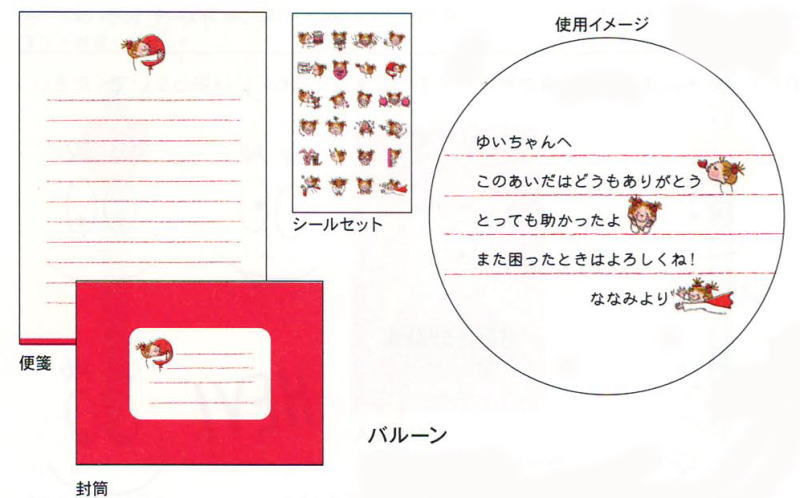 使用イメージ
ゆいちゃんへ
このあいだはどうもありがとう
とっても助かったよ
また困ったときはよろしくね!
ななみより
シールセット
便箋
バルーン
封筒